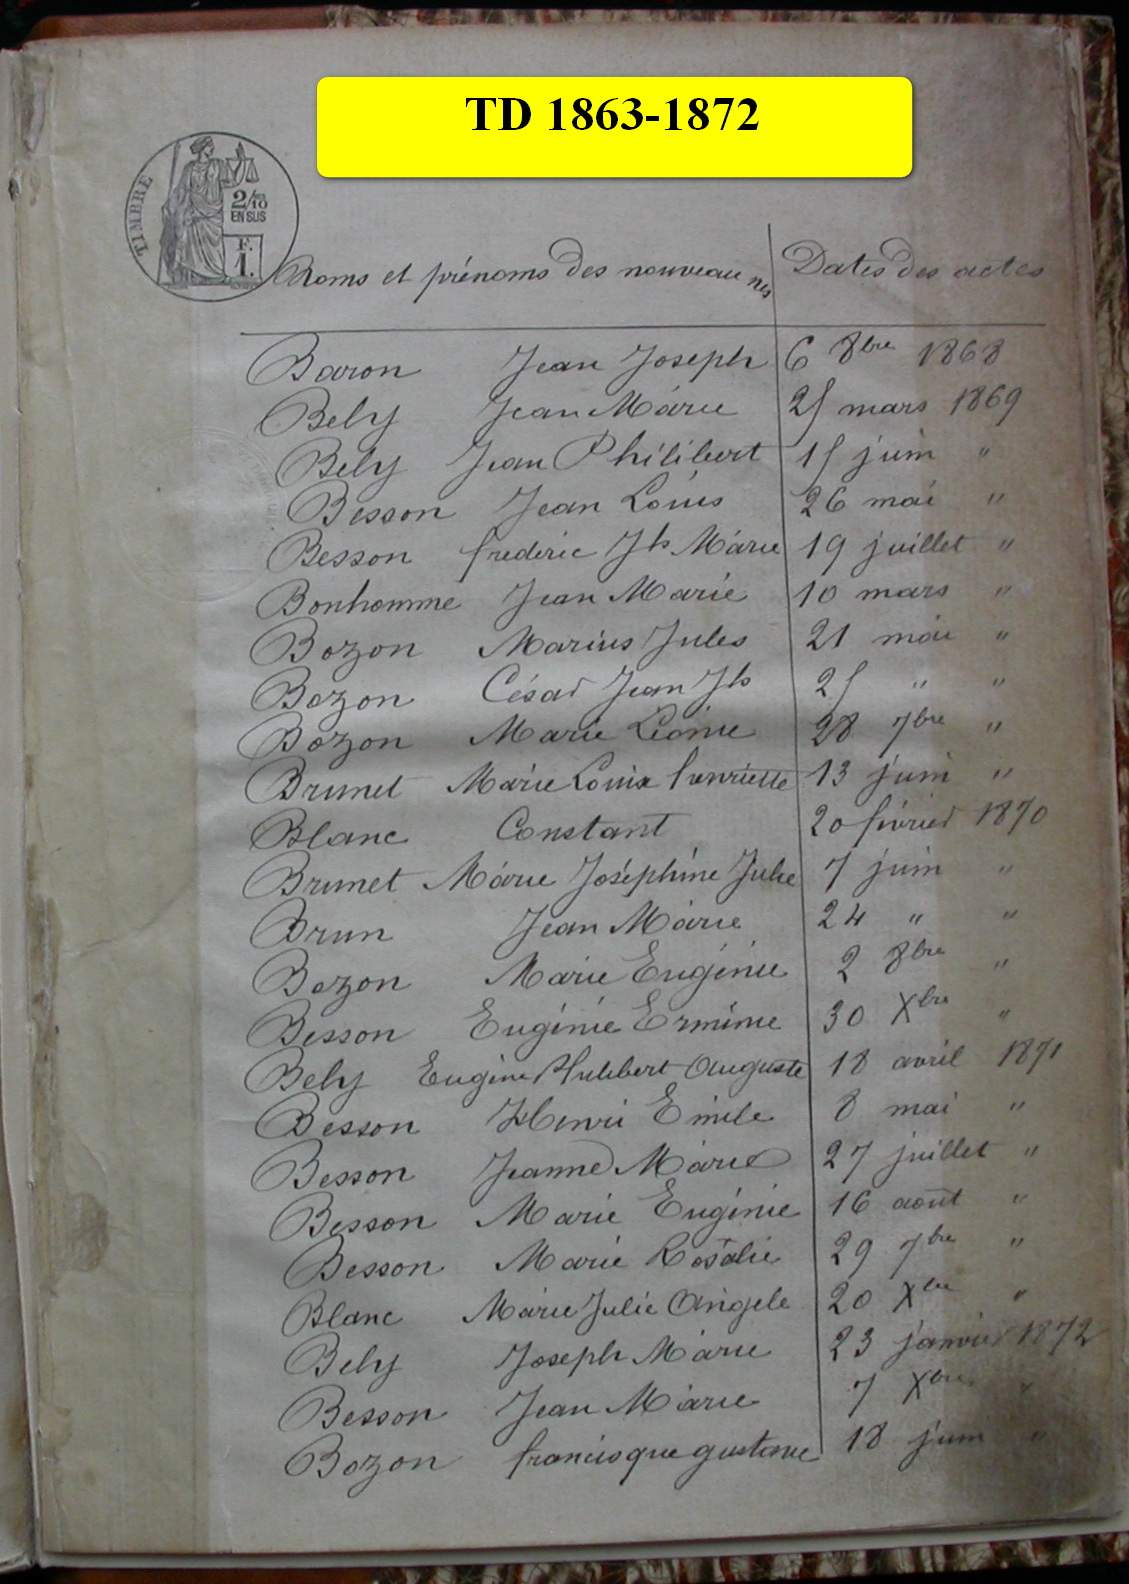 TD 1863-1872
TIMBRE
2/10
EN SUS
F.
1.
Noms et prénoms des nouveau nés Dates des actes
Baron Jean Joseph 6 8bre 1868
Bely Jean Marie 25 mars 1869
Bely Jean Philibert 15 juin "
Besson Jean Louis 26 mai "
Besson frederic Jh Marie 19 juillet "
Bonhomme Jean Marie 10 mars "
Bozon Marius Jules 21 mai "
Bozon César Jean Jh 25 " "
Bozon Marie Léonie 28 7bre "
Brunet Marie Louise henriette 13 juin "
Blanc Constant 20 février 1870
Brunet Marie Joséphine Julie 7 juin "
Brun Jean Marie 24 " "
Bozon Marie Eugénie 2 8bre "
Besson Eugénie Ermine 30 Xbre "
Bely Eugène Philibert Auguste 18 avril 1871
Besson Henri Emile 8 mai "
Besson Jeanne Marie 27 juillet "
Besson Marie Eugénie 16 août "
Besson Marie Rosalie 29 7bre "
Blanc Marie Julie Angele 20 Xbre "
Bely Joseph Marie 23 janvier 1872
Besson Jean Marie 7 Xbre "
Bozon francisque gustave 18 juin "